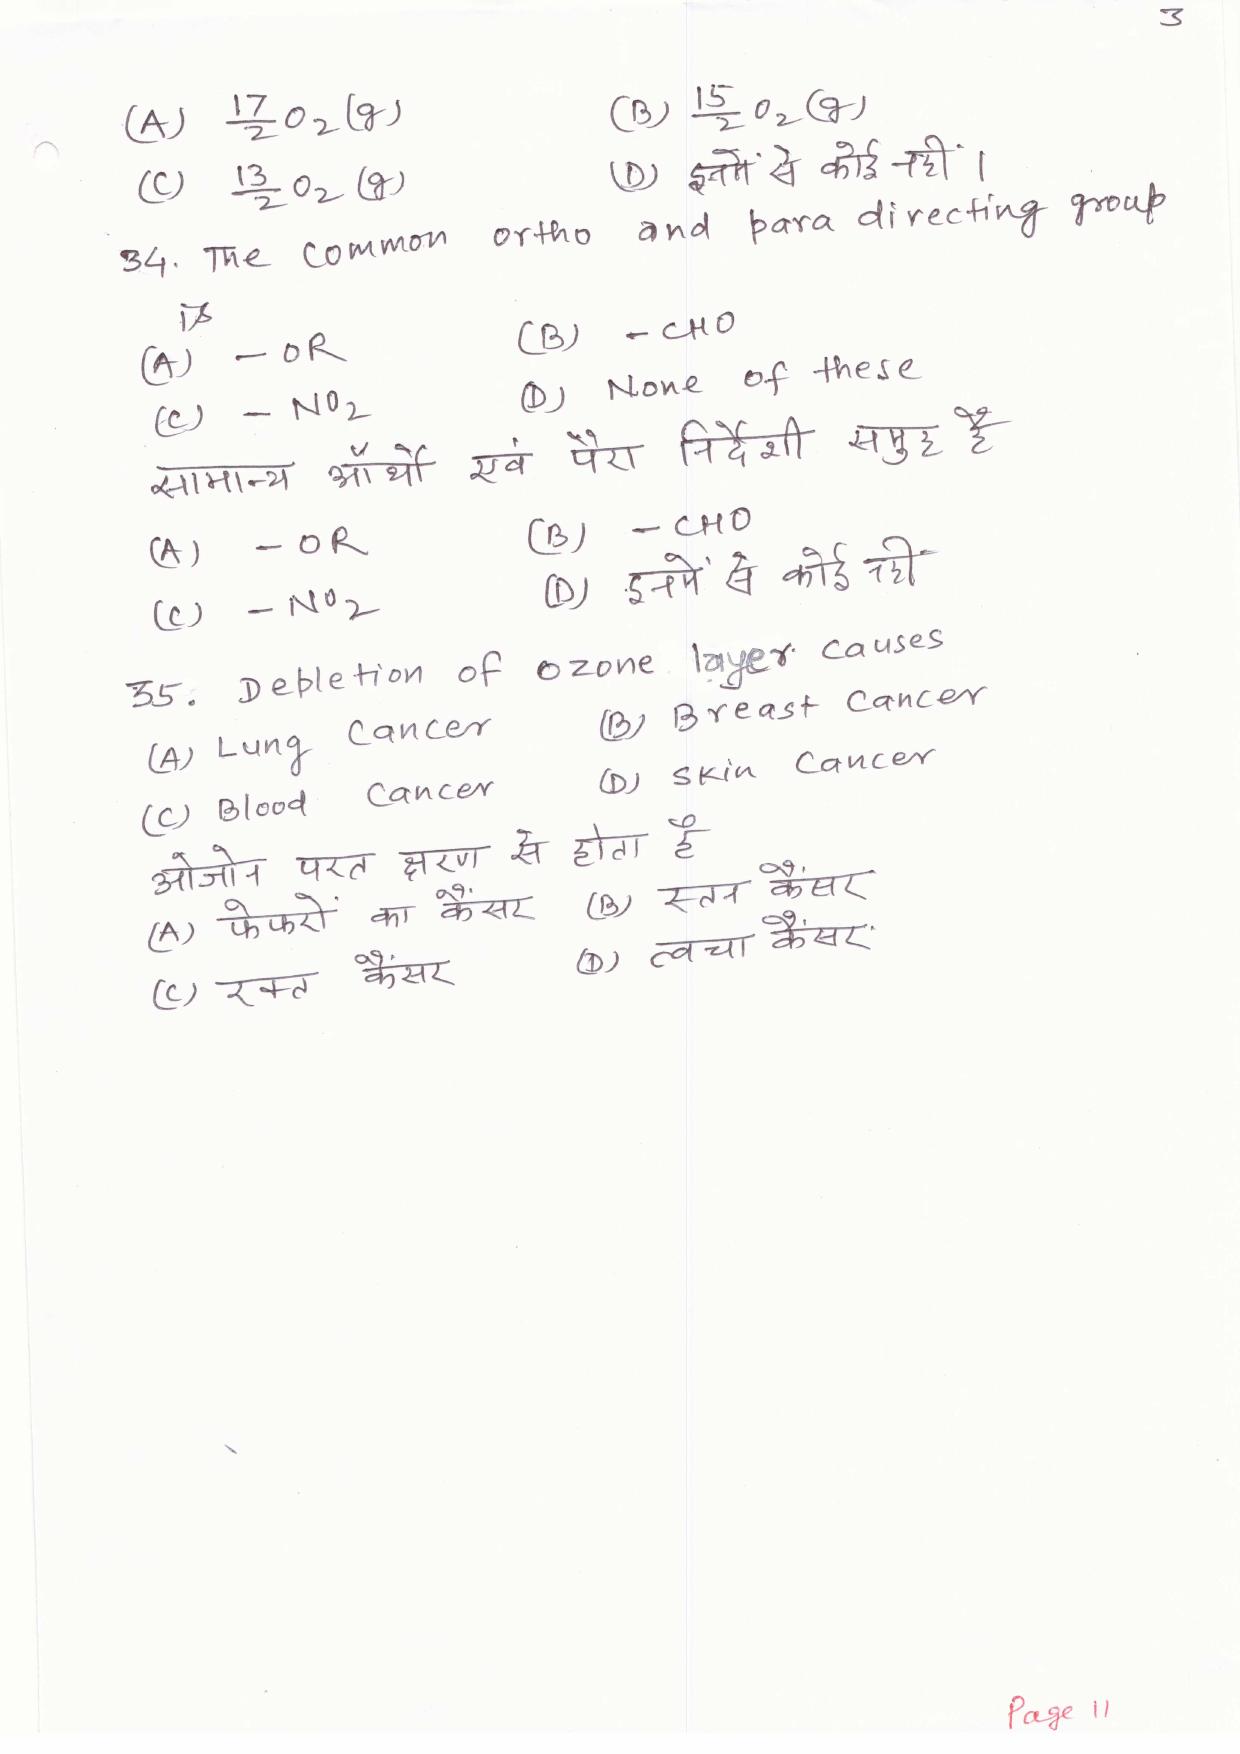 3
(A) 17/2 O2(g) (B) 15/2 O2(g)
(C) 13/2 O2(g) (D) इनमें से कोई नहीं।
34. The common ortho and para directing group
is
(A) – OR (B) – CHO
(C) – NO2 (D) None of these
सामान्य ऑर्थो एवं पैरा निर्देशी समुह है
(A) – OR (B) – CHO
(C) – NO2 (D) इनमें से कोई नही
35. Depletion of ozone layer causes
(A) Lung Cancer (B) Breast Cancer
(C) Blood Cancer (D) Skin Cancer
ओजोन परत क्षरण से होता है
(A) फेफरों का कैंसर (B) स्तन कैंसर
(C) रक्त कैंसर (D) त्वचा कैंसर
Page 11